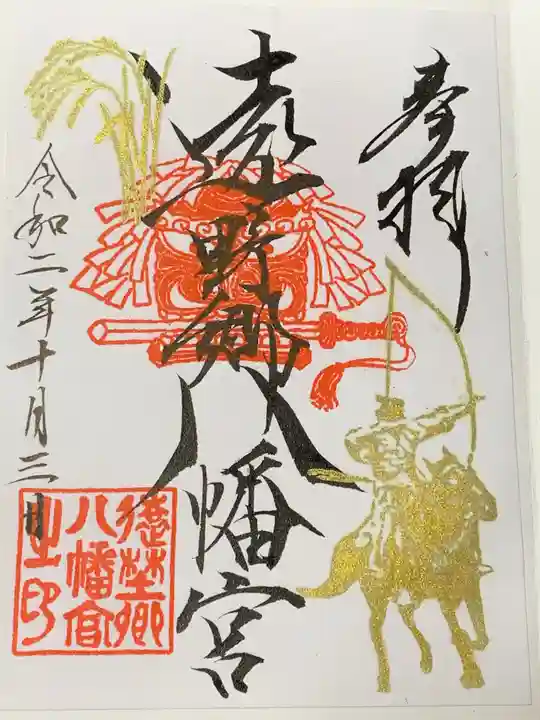 奉拝
遠野郷八幡宮
令和二年十月三日
遠野郷
八幡宮
之印